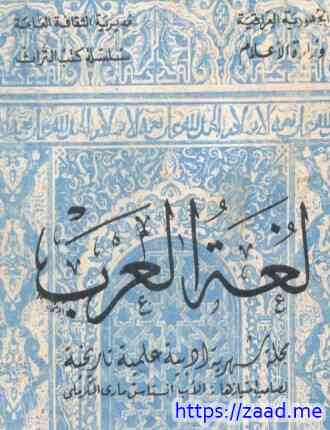 الجمهورية العراقية
وزارة الإعلام
مديرية الثقافة العامة
سلسلة كتب التراث
لغة العرب
مجلة شهرية أدبية علمية تاريخية
لصاحب امتيازها: الأب أنستاس ماري الكرملي
https://zaad.me